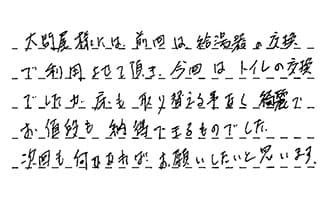 大問屋様には、前回は給湯器の交換
で利用させて頂き、今回はトイレの交換
でしたが、床も取り替える事なく綺麗で
お値段も納得できるものでした。
次回も何かあればお願いしたいと思います。